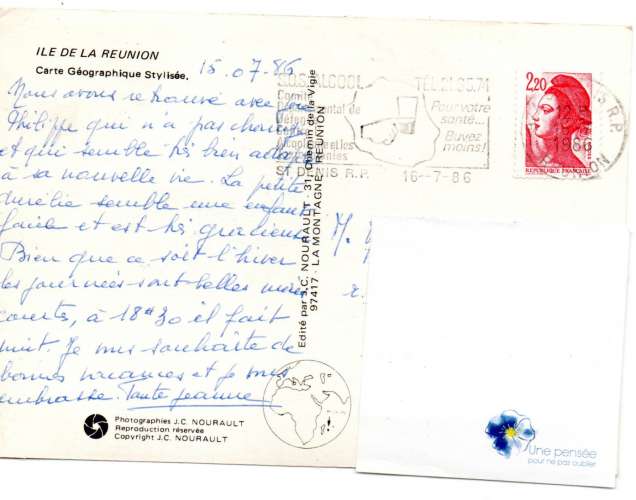 ILE DE LA REUNION
Carte Géographique Stylisée.
15.07.86
Nous avons retrouvé avec joie
Philippe qui n'a pas changé
et qui semble très bien
à sa nouvelle vie. La petite
Aurélie semble une enfant
facile et est très gracieuse
Bien que ce soit l'hiver
les journées sont belles mais
courtes, à 18h30 il fait
nuit. Je vous souhaite de
bonnes vacances et je vous
embrasse. Tante Jeanne
Photographies J.C. NOURAULT
Reproduction réservée
Copyright J.C. NOURAULT
Edité par J.C. NOURAULT - 31, Chemin de la Vigie
97417 - LA MONTAGNE - REUNION
S.O.S. ALCOOL
TEL 21.35.74
Comité
Départemental de
Défense
Contre
Alcoolisme et les
Pour votre
santé...
Buvez
moins!
ST DENIS R.P. 16-7-86
2,20
REPUBLIQUE FRANÇAISE
R.P.
1986
M.
Une pensée
pour ne pas oublier